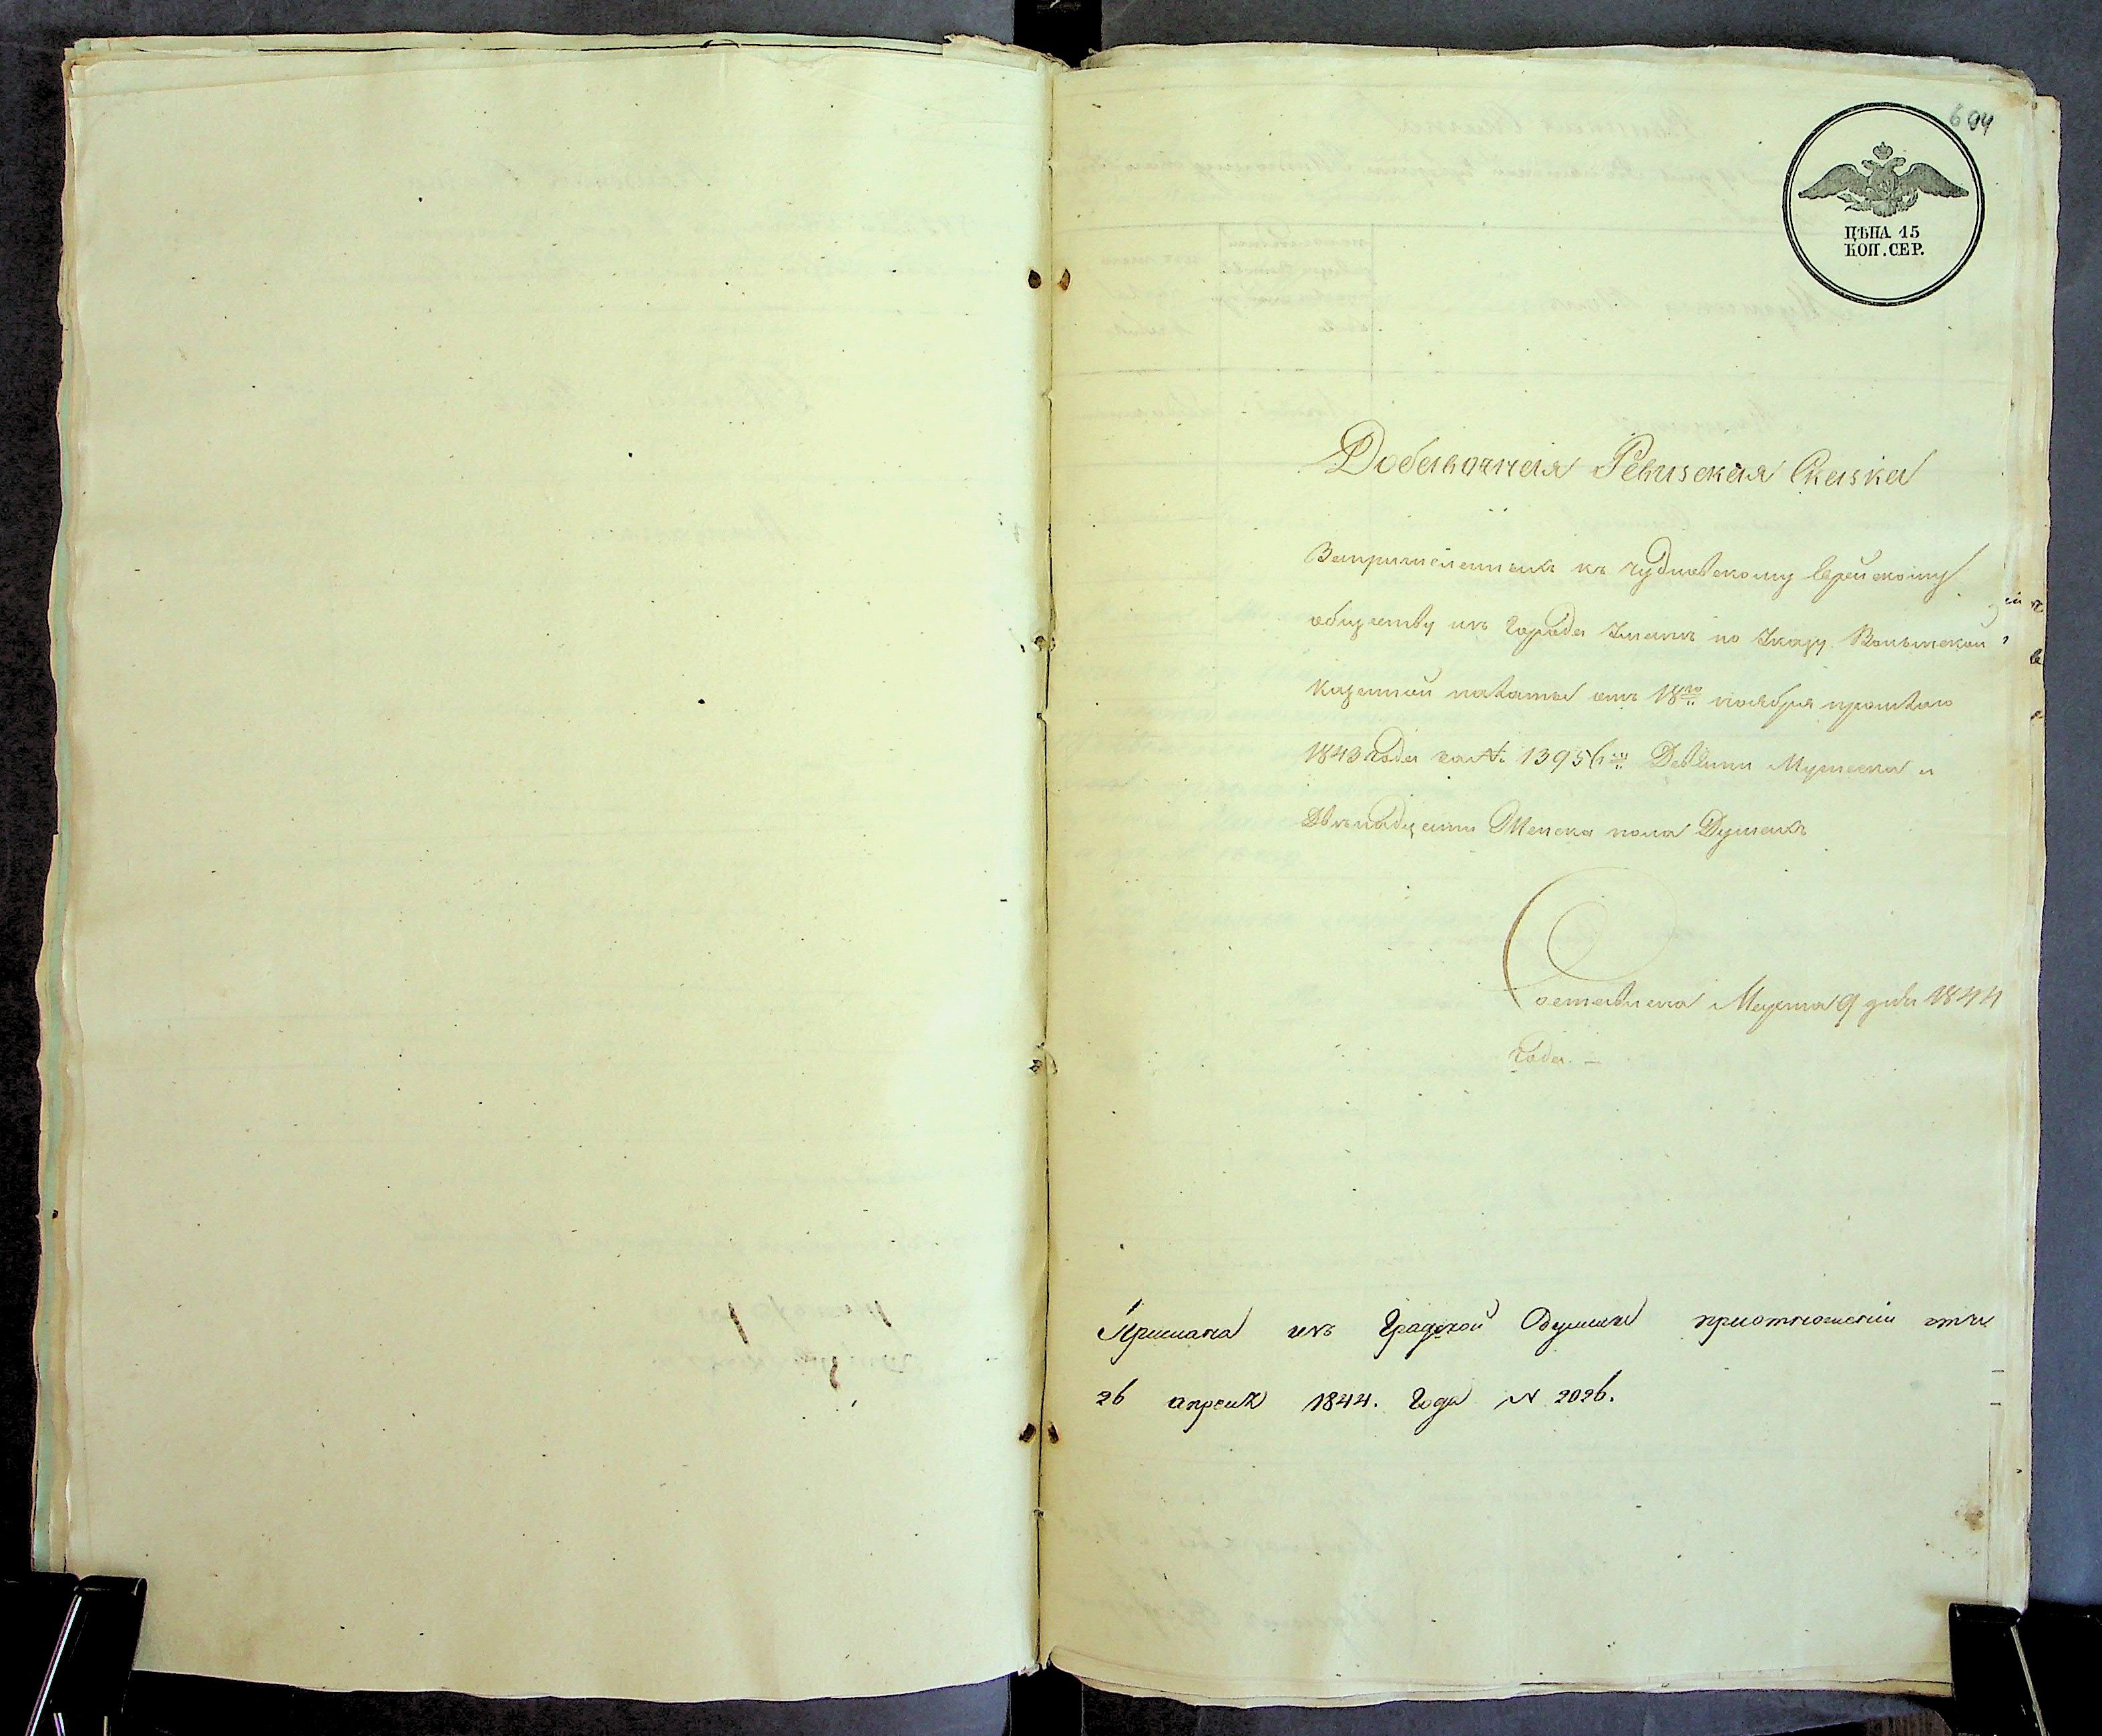 694
ЦѢНА 15
КОП. СЕР.
Добавочная Ревизская Сказка
Запричисленныхъ къ чудновскому Еврейскому
обществу изъ города Умани по Указу Волынской
Казенной палаты отъ 18го ноября прошлаго
1843 года за № 13956м Девяти Мужеска и
Двѣнадцати Женска пола Душахъ
Составлена Марта 9 дня 1844
года. —
Прислана изъ Градской Думы приотношеніи отъ
26 апреля 1844. Года № 2026.